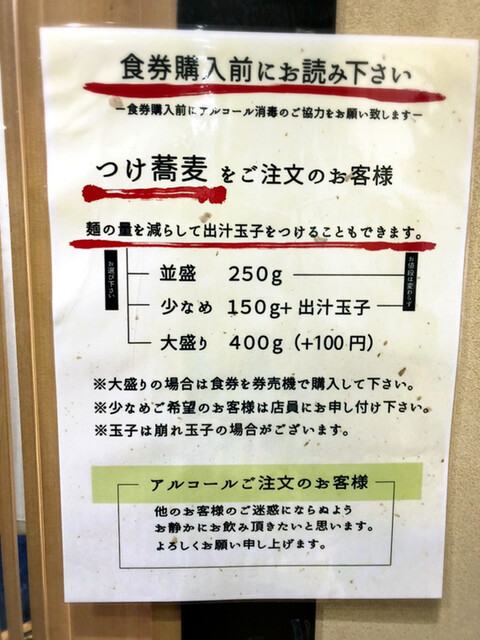 食券購入前にお読み下さい
ー食券購入前にアルコール消毒のご協力をお願い致しますー
つけ蕎麦 をご注文のお客様
麺の量を減らして出汁玉子をつけることもできます。
お選び下さい
並盛 250g
お値段は変わらず
少なめ 150g+ 出汁玉子
大盛り 400g (+100円)
※大盛りの場合は食券を券売機で購入して下さい。
※少なめご希望のお客様は店員にお申し付け下さい。
※玉子は崩れ玉子の場合がございます。
アルコールご注文のお客様
他のお客様のご迷惑にならぬよう
お静かにお飲み頂きたいと思います。
よろしくお願い申し上げます。